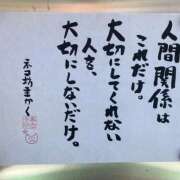 人間関係は
これだけ。
大切にしてくれない
人を、
大切にしないだけ。
ネコ坊まかく